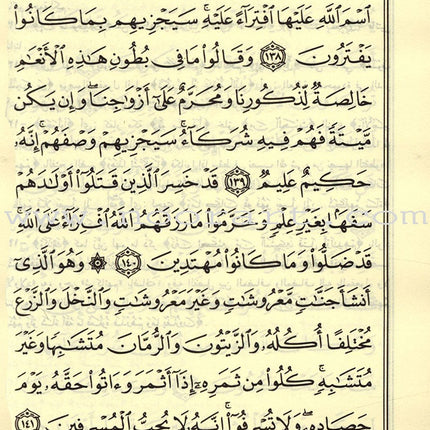 ٱسْمَ ٱللَّهِ عَلَيْهَا ٱفْتِرَآءً عَلَيْهِ ۚ سَيَجْزِيهِم بِمَا كَانُوا۟
يَفْتَرُونَ ١٣٨ وَقَالُوا۟ مَا فِى بُطُونِ هَٰذِهِ ٱلْأَنْعَٰمِ
خَالِصَةٌ لِّذُكُورِنَا وَمُحَرَّمٌ عَلَىٰٓ أَزْوَٰجِنَا ۖ وَإِن يَكُن
مَّيْتَةً فَهُمْ فِيهِ شُرَكَآءُ ۚ سَيَجْزِيهِمْ وَصْفَهُمْ ۚ إِنَّهُۥ
حَكِيمٌ عَلِيمٌ ١٣٩ قَدْ خَسِرَ ٱلَّذِينَ قَتَلُوٓا۟ أَوْلَٰدَهُمْ
سَفَهًۢا بِغَيْرِ عِلْمٍ وَحَرَّمُوا۟ مَا رَزَقَهُمُ ٱللَّهُ ٱفْتِرَآءً عَلَى ٱللَّهِ ۚ
قَدْ ضَلُّوا۟ وَمَا كَانُوا۟ مُهْتَدِينَ ١٤٠ ۞ وَهُوَ ٱلَّذِىٓ
أَنشَأَ جَنَّٰتٍ مَّعْرُوشَٰتٍ وَغَيْرَ مَعْرُوشَٰتٍ وَٱلنَّخْلَ وَٱلزَّرْعَ
مُخْتَلِفًا أُكُلُهُۥ وَٱلزَّيْتُونَ وَٱلرُّمَّانَ مُتَشَٰبِهًا وَغَيْرَ
مُتَشَٰبِهٍ ۚ كُلُوا۟ مِن ثَمَرِهِۦٓ إِذَآ أَثْمَرَ وَءَاتُوا۟ حَقَّهُۥ يَوْمَ
حَصَادِهِۦ ۖ وَلَا تُسْرِفُوٓا۟ ۚ إِنَّهُۥ لَا يُحِبُّ ٱلْمُسْرِفِينَ ١٤١